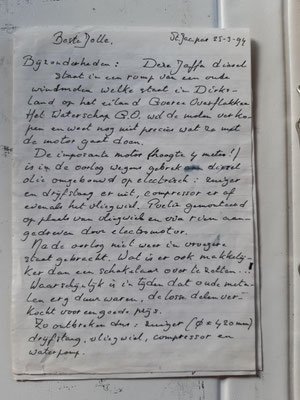 Beste Jolle, St Jacques 25-3-94
Byzonderheden: Deze Jaffa diesel
staat in een romp van een oude
windmolen welke staat in Dirks-
land op het eiland Goeree Overflakkee
Het Waterschap G.O. wil de molen verko-
pen en weet nog niet precies wat ze met
de motor gaat doen.
De imposante motor (hoogte 4 meter!)
is in de oorlog wegens gebrek aan diesel
olie omgebouwd op electrisch: zuiger
en dryfstang er uit, compressor er af
evenals het vliegwiel. Poelie gemonteerd
op plaats van vliegwiel en via riem aan-
gedreven door electromotor.
Na de oorlog niet weer in vroegere
staat gebracht. Wat is er ook makkely-
ker dan een schakelaar over te zetten...!
Waarschynlyk is in tyden dat oude meta-
len erg duur waren, de losse delen ver-
kocht voor een goede prys.
Zo ontbreken dus: zuiger (Ø ± 420 mm)
dryfstang, vliegwiel, compressor en
waterpomp.